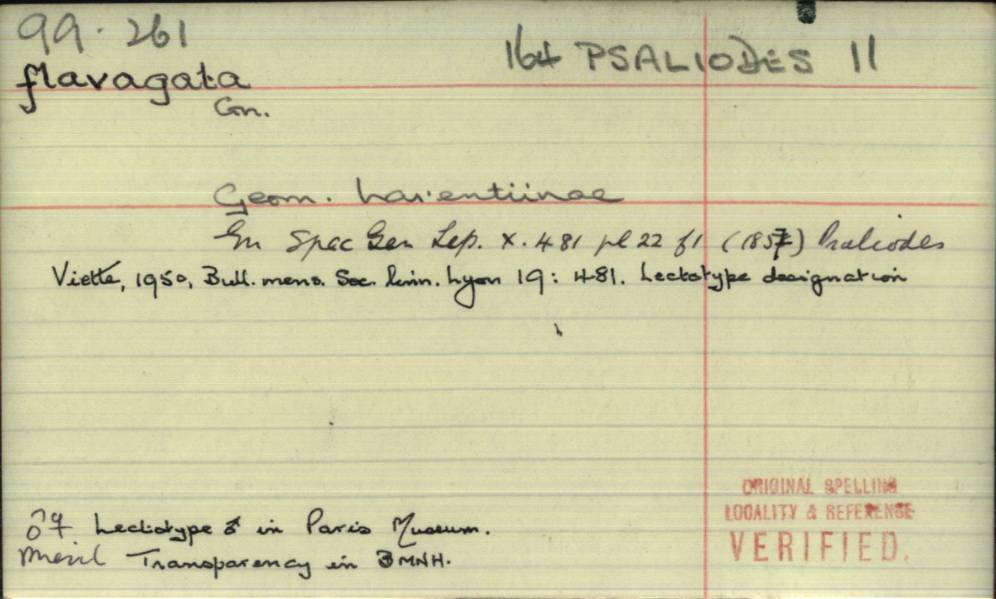 99.261
164 PSALIODES 11
flavagata
Gn.
Geom. Larentiinae
Gn Spec Gen Lep. X. 481 pl 22 f1 (1857) Psaliodes
Viette, 1950, Bull. mens. Soc. linn. Lyon 19: 481. Lectotype designation
♂♀ Lectotype ♂ in Paris Museum.
Brazil Transparency in BMNH.
ORIGINAL SPELLING
LOCALITY & REFERENCE
VERIFIED.